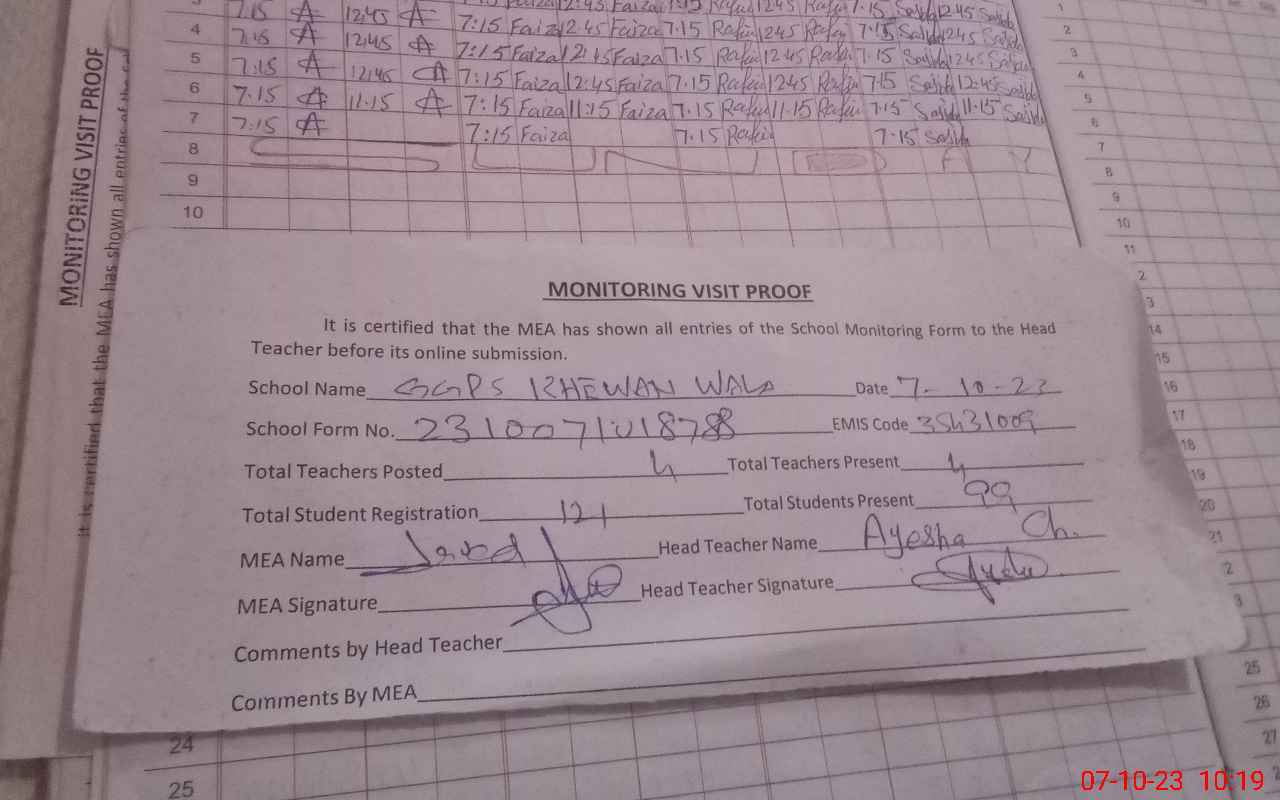 7.15 A 12:45 A
4 7:15 A 12:45 A 7:15 Faiza 12.45 Faiza 7.15 Rafia 1245 Rafia 7.15
5 7:15 A 12:45 A 7:15 Faiza 12:45 Faiza 7.15 Rafia 12.45 7.15
6 7.15 A 11.15 A 7:15 Faiza 12:45 Faiza 7.15 1245 7.15 12.45
7 7:15 A 7:15 Faiza 11:15 Faiza 7.15 11.15 7.15 11.15
8 7:15 Faiza 7.15 7.15
9
10
MONITORING VISIT PROOF
It is certified that the MEA has shown all entries of the
MONITORING VISIT PROOF
It is certified that the MEA has shown all entries of the School Monitoring Form to the Head
Teacher before its online submission.
School Name GGPS KHEWAN WALA Date 7-10-23
School Form No. 2310071018788 EMIS Code 35431009
Total Teachers Posted 4 Total Teachers Present 4
Total Student Registration 121 Total Students Present 99
MEA Name Javed Head Teacher Name Ayesha Ch.
MEA Signature Head Teacher Signature
Comments by Head Teacher
Comments By MEA
24
25
1
2
3
4
5
6
7
8
9
10
11
2
3
14
15
16
17
18
19
20
21
2
3
25
26
27
07-10-23 10:19